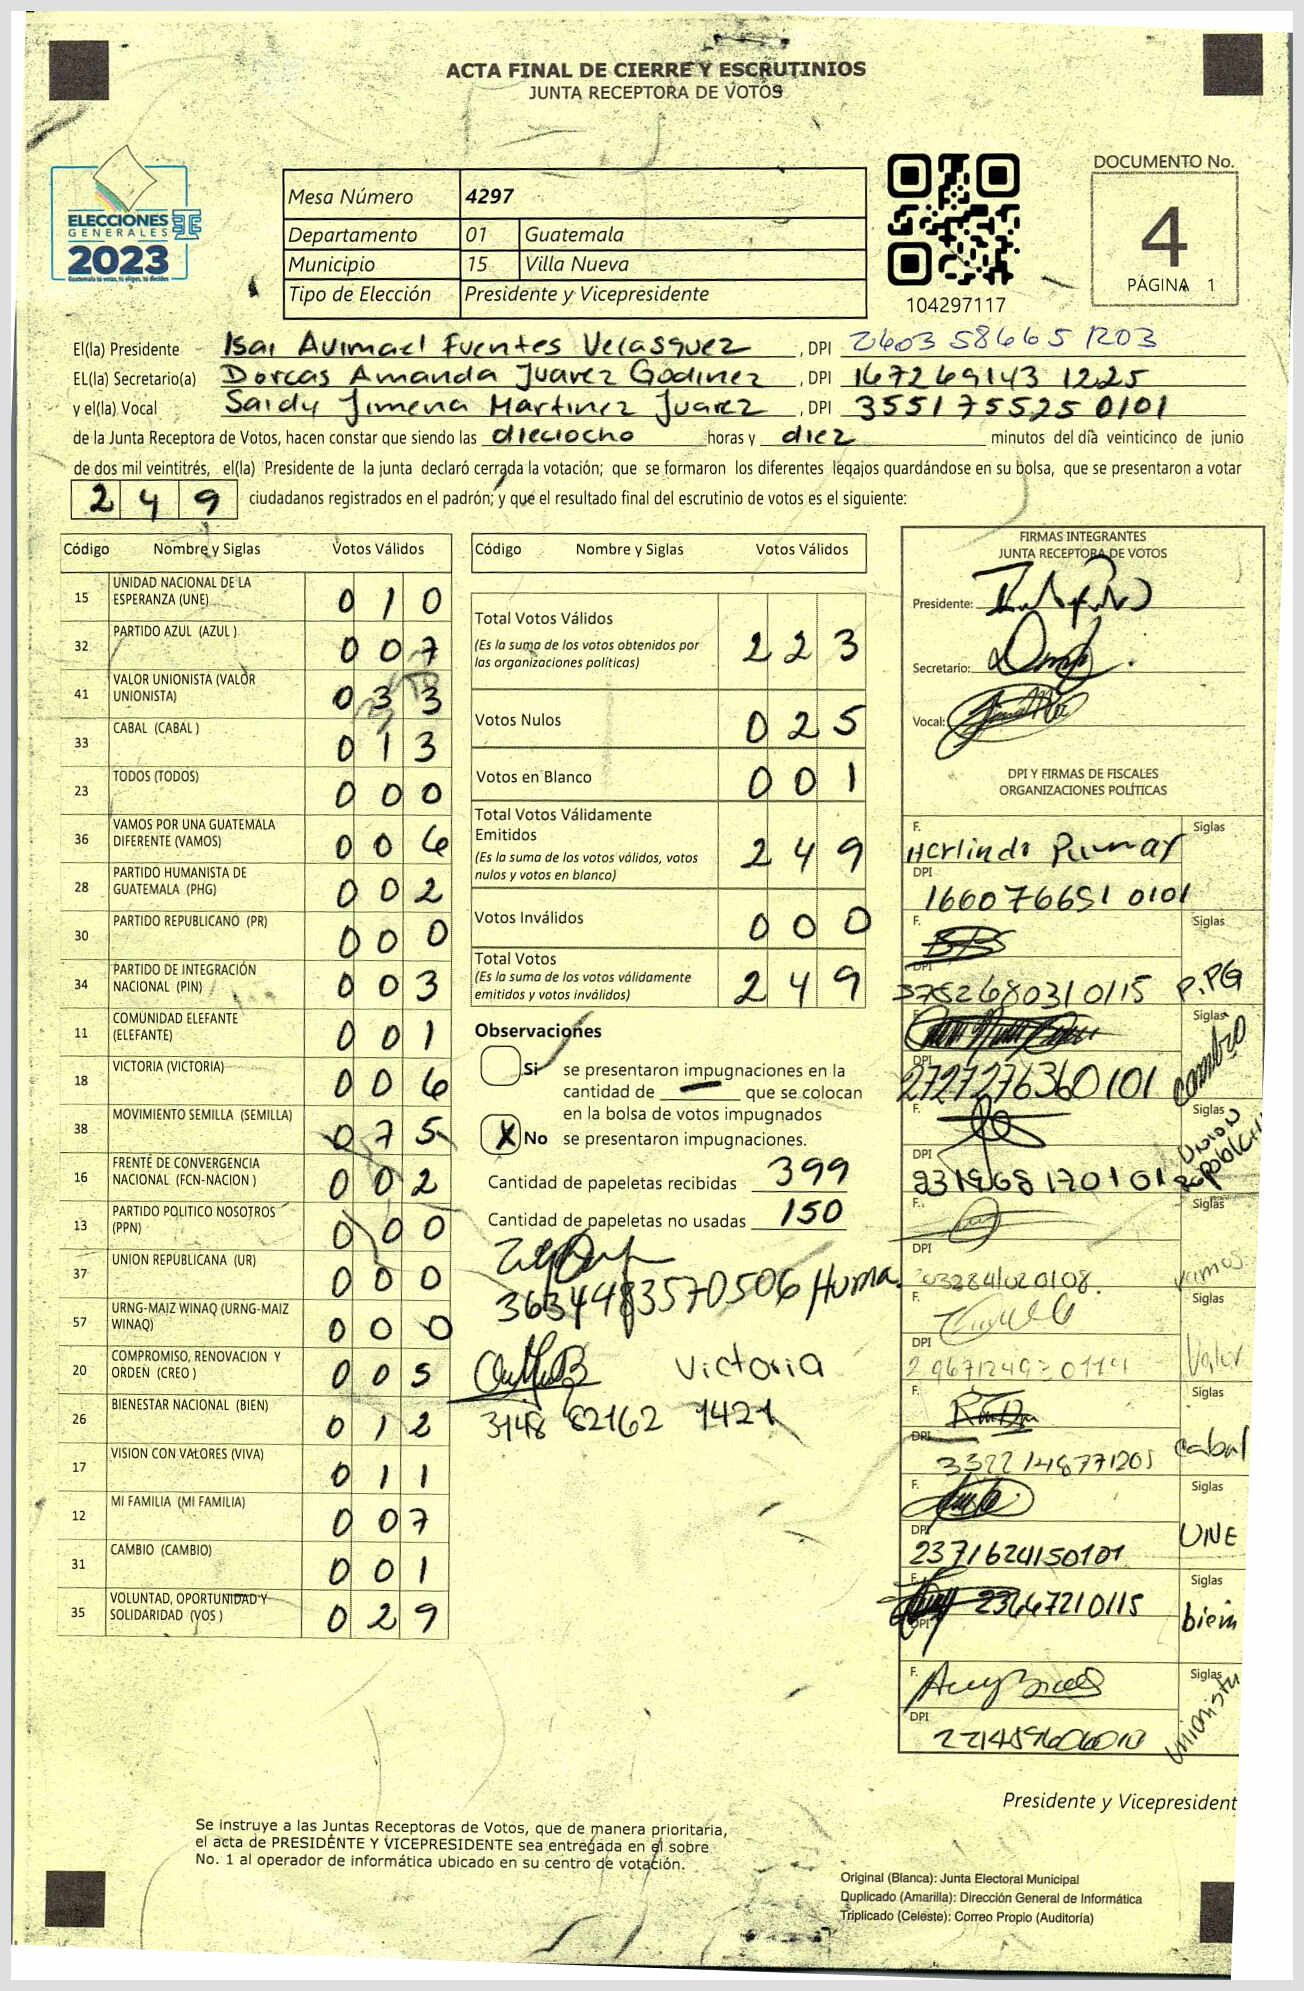 ACTA FINAL DE CIERRE Y ESCRUTINIOS
JUNTA RECEPTORA DE VOTOS
ELECCIONES
GENERALES
2023
Guatemala tú votas, tú eliges, tú decides
Mesa Número 4297
Departamento 01 Guatemala
Municipio 15 Villa Nueva
Tipo de Elección Presidente y Vicepresidente
104297117
DOCUMENTO No.
4
PÁGINA 1
El(la) Presidente Isai Avimael Fuentes Velasquez, DPI 2603 58665 1203
EL(la) Secretario(a) Dorcas Amanda Juarez Godinez, DPI 167269143 1225
y el(la) Vocal Saidy Jimena Martinez Juarez, DPI 355175525 0101
de la Junta Receptora de Votos, hacen constar que siendo las dieciocho horas y diez minutos del día veinticinco de junio
de dos mil veintitrés, el(la) Presidente de la junta declaró cerrada la votación; que se formaron los diferentes legajos guardándose en su bolsa, que se presentaron a votar
249 ciudadanos registrados en el padrón; y que el resultado final del escrutinio de votos es el siguiente:
Código Nombre y Siglas Votos Válidos
15 UNIDAD NACIONAL DE LA ESPERANZA (UNE) 010
32 PARTIDO AZUL (AZUL ) 007
41 VALOR UNIONISTA (VALOR UNIONISTA) 033
33 CABAL (CABAL ) 013
23 TODOS (TODOS) 000
36 VAMOS POR UNA GUATEMALA DIFERENTE (VAMOS) 006
28 PARTIDO HUMANISTA DE GUATEMALA (PHG) 002
30 PARTIDO REPUBLICANO (PR) 000
34 PARTIDO DE INTEGRACIÓN NACIONAL (PIN) 003
11 COMUNIDAD ELEFANTE (ELEFANTE) 001
18 VICTORIA (VICTORIA) 006
38 MOVIMIENTO SEMILLA (SEMILLA) 075
16 FRENTE DE CONVERGENCIA NACIONAL (FCN-NACION ) 002
13 PARTIDO POLITICO NOSOTROS (PPN) 000
37 UNION REPUBLICANA (UR) 000
57 URNG-MAIZ WINAQ (URNG-MAIZ WINAQ) 000
20 COMPROMISO, RENOVACION Y ORDEN (CREO ) 005
26 BIENESTAR NACIONAL (BIEN) 012
17 VISION CON VALORES (VIVA) 011
12 MI FAMILIA (MI FAMILIA) 007
31 CAMBIO (CAMBIO) 001
35 VOLUNTAD, OPORTUNIDAD Y SOLIDARIDAD (VOS ) 029
Código Nombre y Siglas Votos Válidos
Total Votos Válidos 223
(Es la suma de los votos obtenidos por
las organizaciones políticas)
Votos Nulos 025
Votos en Blanco 001
Total Votos Válidamente
Emitidos 249
(Es la suma de los votos válidos, votos
nulos y votos en blanco)
Votos Inválidos 000
Total Votos 249
(Es la suma de los votos válidamente
emitidos y votos inválidos)
Observaciones
Si se presentaron impugnaciones en la
cantidad de — que se colocan
en la bolsa de votos impugnados
X No se presentaron impugnaciones.
Cantidad de papeletas recibidas 399
Cantidad de papeletas no usadas 150
3634483570506 Huma.
Victoria
3148 82162 1421
FIRMAS INTEGRANTES
JUNTA RECEPTORA DE VOTOS
Presidente:
Secretario:
Vocal:
DPI Y FIRMAS DE FISCALES
ORGANIZACIONES POLÍTICAS
F. Herlindo Siglas
DPI 166076651 0101
F. Siglas
DPI 3752680310115 P.PG
F. Siglas
DPI 2727276360101 cambio
F. Siglas
DPI 231968170101 Union Republica
F. Siglas
DPI vamos
F. Siglas
DPI Valor
F. Siglas
DPI 3322148771205 cabal
F. Siglas
DPI 2371624150101 UNE
F. 23667210115 Siglas
DPI bien
F. Siglas
DPI unionista
Presidente y Vicepresident
Se instruye a las Juntas Receptoras de Votos, que de manera prioritaria,
el acta de PRESIDENTE Y VICEPRESIDENTE sea entregada en el sobre
No. 1 al operador de informática ubicado en su centro de votación.
Original (Blanca): Junta Electoral Municipal
Duplicado (Amarilla): Dirección General de Informática
Triplicado (Celeste): Correo Propio (Auditoría)